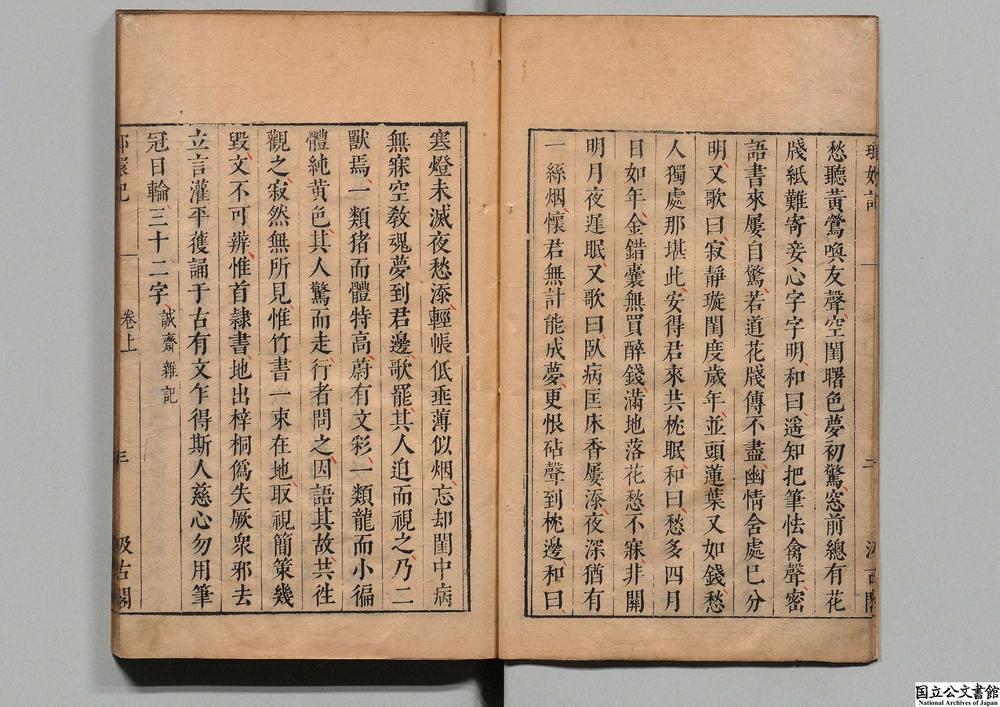 愁聽黃鶯喚友聲空閨曙色夢初驚窓前總有花
牋紙難寄妾心字字明和曰遥知把筆怯禽聲密
語書來屢自驚若道花牋傳不盡幽情舍處已分
明又歌曰寂靜璇閨度歲年並頭蓮葉又如錢愁
人獨處那堪此安得君來共枕眠和曰愁多四月
日如年金錯囊無買醉錢滿地落花愁不寐非關
明月夜遲眠又歌曰臥病匡床香屢添夜深猶有
一絲烟懷君無計能成夢更恨砧聲到枕邊和曰
寒燈未滅夜愁添輕帳低垂薄似烟忘却閨中病
無寐空敎魂夢到君邊歌罷其人迫而視之乃二
獸焉一類猪而體特高蔚有文彩一類龍而小徧
體純黄色其人驚而走行者問之因語其故共徃
觀之寂然無所見惟竹書一束在地取視簡策幾
毀文不可辨惟首隷書地出梓桐僞失厥衆邪去
立言灌平蒦誦于古有文乍得斯人慈心勿用筆
冠日輪三十二字 誠齋雜記
卷上
三
汲古閣
国立公文書館
National Archives of Japan